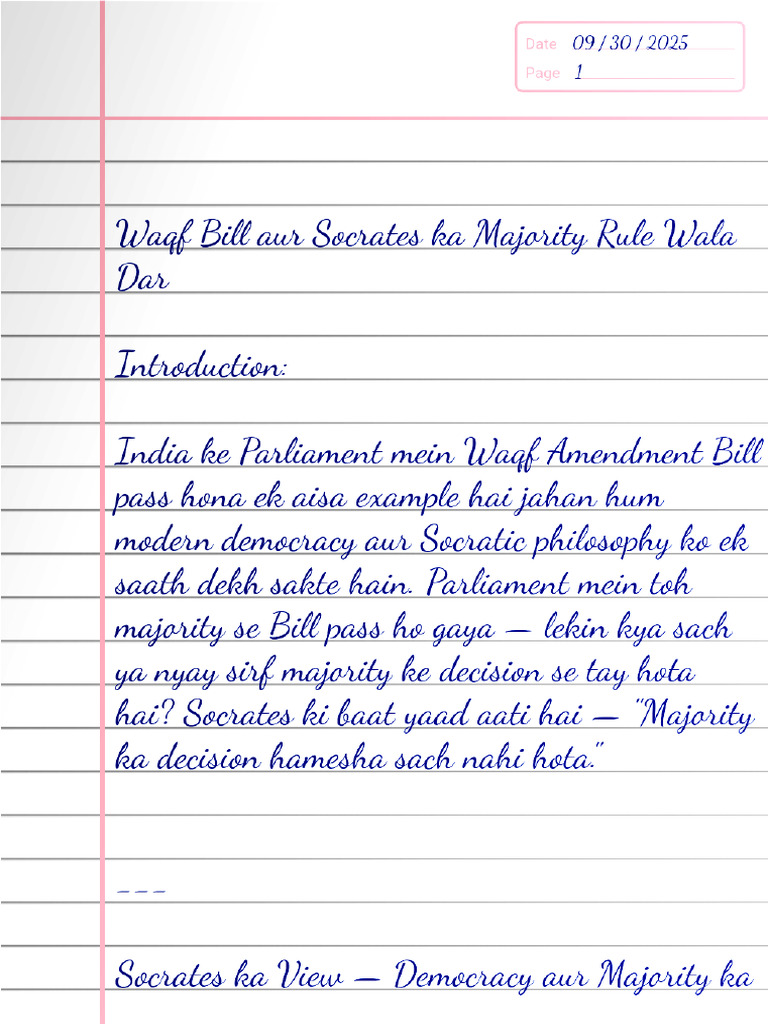 Date 09/30/2025
Page 1
Waqf Bill aur Socrates ka Majority Rule Wala
Dar
Introduction:
India ke Parliament mein Waqf Amendment Bill
pass hona ek aisa example hai jahan hum
modern democracy aur Socratic philosophy ko ek
saath dekh sakte hain. Parliament mein toh
majority se Bill pass ho gaya — lekin kya sach
ya nyay sirf majority ke decision se tay hota
hai? Socrates ki baat yaad aati hai — "Majority
ka decision hamesha sach nahi hota."
---
Socrates ka View — Democracy aur Majority ka